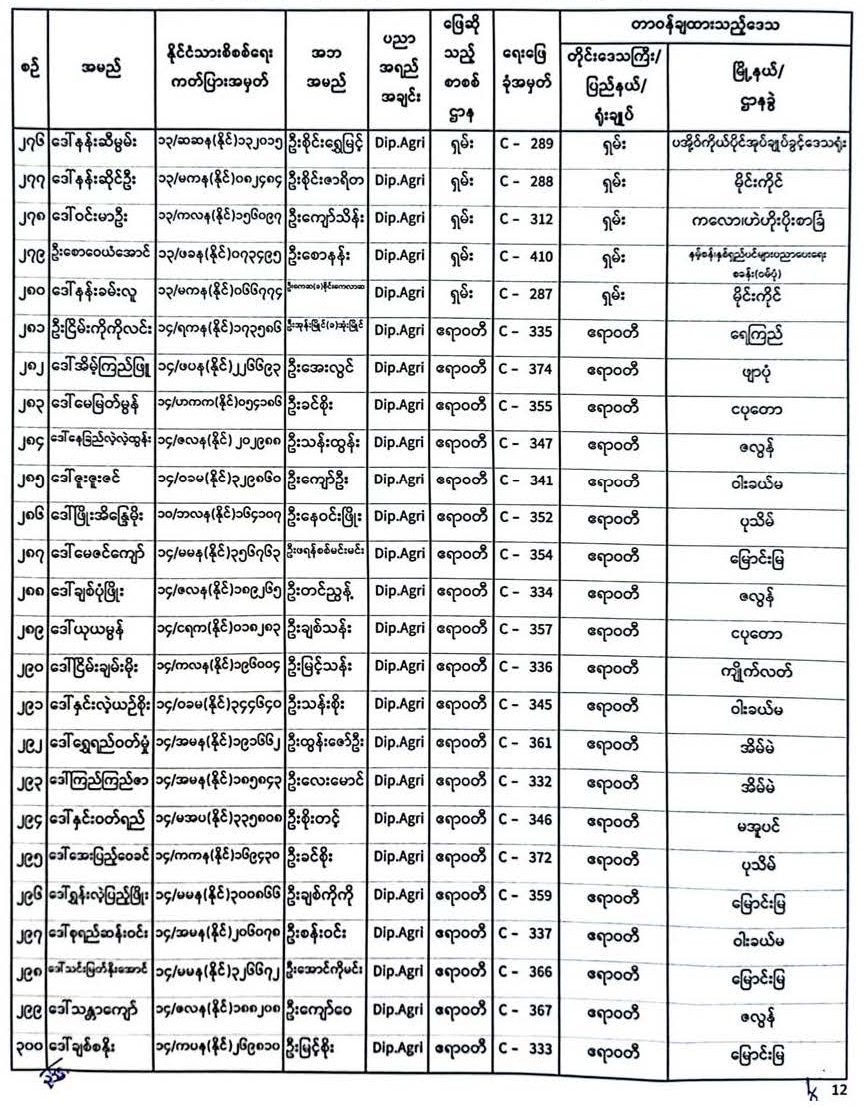 စဉ် အမည် နိုင်ငံသားစိစစ်ရေး ကတ်ပြားအမှတ် အဘ အမည် ပညာ အရည် အချင်း ဖြေဆို သည့် စာစစ် ဌာန ရေးဖြေ ခုံအမှတ် တာဝန်ချထားသည့်ဒေသ
တိုင်းဒေသကြီး/ ပြည်နယ်/ ရုံးချုပ် မြို့နယ်/ ဌာနခွဲ
၂၇၆ ဒေါ်နန်းဆီမွမ်း ၁၃/ဆဆန(နိုင်)၁၃၂၀၁၅ ဦးစိုင်းရွှေမြင့် Dip.Agri ရှမ်း C - 289 ရှမ်း ပအိုဝ်ကိုယ်ပိုင်အုပ်ချုပ်ခွင့်ဒေသရုံး
၂၇၇ ဒေါ်နန်းဆိုင်ဦး ၁၃/မကန(နိုင်)၀၈၂၄၈၄ ဦးစိုင်းဇာရိတ Dip.Agri ရှမ်း C - 288 ရှမ်း မိုင်းကိုင်
၂၇၈ ဒေါ်ဝင်းမာဦး ၁၃/ကလန(နိုင်)၁၅၆၀၉၇ ဦးကျော်သိန်း Dip.Agri ရှမ်း C - 312 ရှမ်း ကလော၊ဟဲဟိုးပိုးစာခြံ
၂၇၉ ဦးစောဝေယံအောင် ၁၃/ဖခန(နိုင်)၀၇၃၄၉၅ ဦးစောနန်း Dip.Agri ရှမ်း C - 410 ရှမ်း နမ့်စန်နှစ်ရှည်ပင်များပညာပေးရေး စခန်း(ဝမ်ပုံ)
၂၈၀ ဒေါ်နန်းခမ်းလူ ၁၃/မကန(နိုင်)၀၆၆၇၇၄ Dip.Agri ရှမ်း C - 287 ရှမ်း မိုင်းကိုင်
၂၈၁ ဦးငြိမ်းကိုကိုလင်း ၁၄/ရကန(နိုင်)၁၇၃၅၈၆ ဦးအုန်းမြိုင်(ခ)အုံးမြိုင် Dip.Agri ဧရာဝတီ C - 335 ဧရာဝတီ ရေကြည်
၂၈၂ ဒေါ်အိမ့်ကြည်ဖြူ ၁၄/ဖပန(နိုင်)၂၂၆၆၉၃ ဦးအေးလွင် Dip.Agri ဧရာဝတီ C - 374 ဧရာဝတီ ဖျာပုံ
၂၈၃ ဒေါ်မေမြတ်မွန် ၁၄/ဟကက(နိုင်)၀၅၄၁၈၆ ဦးခင်စိုး Dip.Agri ဧရာဝတီ C - 355 ဧရာဝတီ ငပုတော
၂၈၄ ဒေါ်နေခြည်လဲ့လဲ့ထွန်း ၁၄/ဇလန(နိုင်) ၂၀၂၉၈၈ ဦးသန်းထွန်း Dip.Agri ဧရာဝတီ C - 347 ဧရာဝတီ ဇလွန်
၂၈၅ ဒေါ်ဇူးဇူးဇင် ၁၄/ဝခမ(နိုင်)၃၂၉၈၆၀ ဦးကျော်ဦး Dip.Agri ဧရာဝတီ C - 341 ဧရာဝတီ ဝါးခယ်မ
၂၈၆ ဒေါ်ဖြိုးအိန္ဒြေမိုး ၁၀/ဘလန(နိုင်)၁၆၄၁၀၇ ဦးနေဝင်းဖြိုး Dip.Agri ဧရာဝတီ C - 352 ဧရာဝတီ ပုသိမ်
၂၈၇ ဒေါ်မေဇင်ကျော် ၁၄/မမန(နိုင်)၃၅၆၇၆၃ ဦးဇရန်စစ်မင်းမင်း Dip.Agri ဧရာဝတီ C - 354 ဧရာဝတီ မြောင်းမြ
၂၈၈ ဒေါ်ချစ်ပုံဖြိုး ၁၄/ဇလန(နိုင်)၁၈၉၂၆၅ ဦးတင်ညွန့် Dip.Agri ဧရာဝတီ C - 334 ဧရာဝတီ ဇလွန်
၂၈၉ ဒေါ်ယုယမွန် ၁၄/ငရက(နိုင်)၀၁၈၂၈၃ ဦးချစ်သန်း Dip.Agri ဧရာဝတီ C - 357 ဧရာဝတီ ငပုတော
၂၉၀ ဒေါ်ငြိမ်းချမ်းမိုး ၁၄/ကလန(နိုင်)၁၉၆၀၀၄ ဦးမြင့်သန်း Dip.Agri ဧရာဝတီ C - 336 ဧရာဝတီ ကျိုက်လတ်
၂၉၁ ဒေါ်နှင်းလဲ့ယဉ်စိုး ၁၄/ဝခမ(နိုင်)၃၄၄၆၄၀ ဦးသန်းစိုး Dip.Agri ဧရာဝတီ C - 345 ဧရာဝတီ ဝါးခယ်မ
၂၉၂ ဒေါ်ရွှေရည်ဝတ်မှုံ ၁၄/အမန(နိုင်)၁၉၁၆၆၂ ဦးထွန်းဇော်ဦး Dip.Agri ဧရာဝတီ C - 361 ဧရာဝတီ အိမ်မဲ
၂၉၃ ဒေါ်ကြည်ကြည်ဇာ ၁၄/အမန(နိုင်)၁၈၅၈၄၃ ဦးလေးမောင် Dip.Agri ဧရာဝတီ C - 332 ဧရာဝတီ အိမ်မဲ
၂၉၄ ဒေါ်နှင်းဝတ်ရည် ၁၄/မအပ(နိုင်)၃၃၅၈၀၈ ဦးစိုးတင့် Dip.Agri ဧရာဝတီ C - 346 ဧရာဝတီ မအူပင်
၂၉၅ ဒေါ်အေးပြည့်ဝေခင် ၁၄/ကကန(နိုင်)၁၆၉၄၃၀ ဦးခင်စိုး Dip.Agri ဧရာဝတီ C - 372 ဧရာဝတီ ပုသိမ်
၂၉၆ ဒေါ်ရွှန်းလဲ့ပြည့်ဖြိုး ၁၄/မမန(နိုင်)၃၀၀၈၆၆ ဦးချစ်ကိုကို Dip.Agri ဧရာဝတီ C - 359 ဧရာဝတီ မြောင်းမြ
၂၉၇ ဒေါ်စုရည်ဆန်းဝင်း ၁၄/အမန(နိုင်)၂၀၆၀၇၈ ဦးစန်းဝင်း Dip.Agri ဧရာဝတီ C - 337 ဧရာဝတီ ဝါးခယ်မ
၂၉၈ ဒေါ်သင်းမြတ်နိုးအောင် ၁၄/မမန(နိုင်)၃၂၆၆၇၂ ဦးအောင်ကိုမင်း Dip.Agri ဧရာဝတီ C - 366 ဧရာဝတီ မြောင်းမြ
၂၉၉ ဒေါ်သန္တာကျော် ၁၄/ဇလန(နိုင်)၁၈၈၂၀၈ ဦးကျော်ဝေ Dip.Agri ဧရာဝတီ C - 367 ဧရာဝတီ ဇလွန်
၃၀၀ ဒေါ်ချစ်စနိုး ၁၄/ကပန(နိုင်)၂၆၉၈၁၀ ဦးမြင့်စိုး Dip.Agri ဧရာဝတီ C - 333 ဧရာဝတီ မြောင်းမြ
12